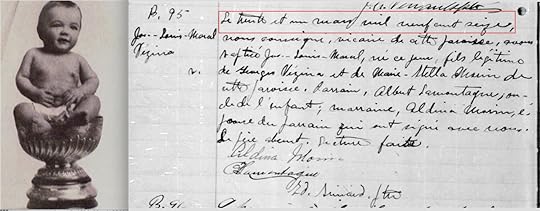 B. 95
Jos-Louis-Marcel
Vézina
Le trente et un mars mil neuf cent seize,
nous soussigné, vicaire de cette paroisse, avons
baptisé Jos-Louis-Marcel, né ce jour, fils légitime
de Georges Vézina et de Marie-Stella Morin de
cette paroisse. Parrain, Albert Lamontagne, on-
cle de l'enfant; marraine, Aldina Morin, é-
pouse du parrain qui ont signé avec nous.
Le père absent. Lecture faite.
Aldina Morin
Lamontagne
Ptre